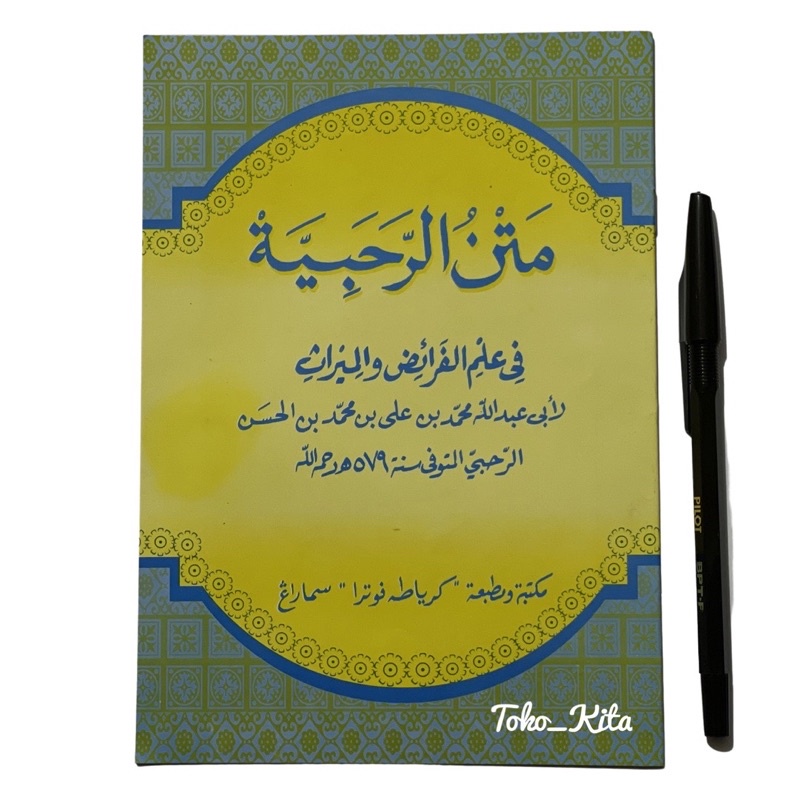 مَتْنُ الرَّحَبِيَّةْ
فِي عِلْمِ الفَرَائِضِ وَالمِيْرَاثِ
لأبى عبد الله محمّد بن على بن محمّد بن الحَسَن
الرّحبيّ المتوفى سنة ٥٧٩ هـ رحمه الله
مكتبة ومطبعة "كرياطه فوترا" سماراڠ
Toko_Kita
PILOT
BPT-F